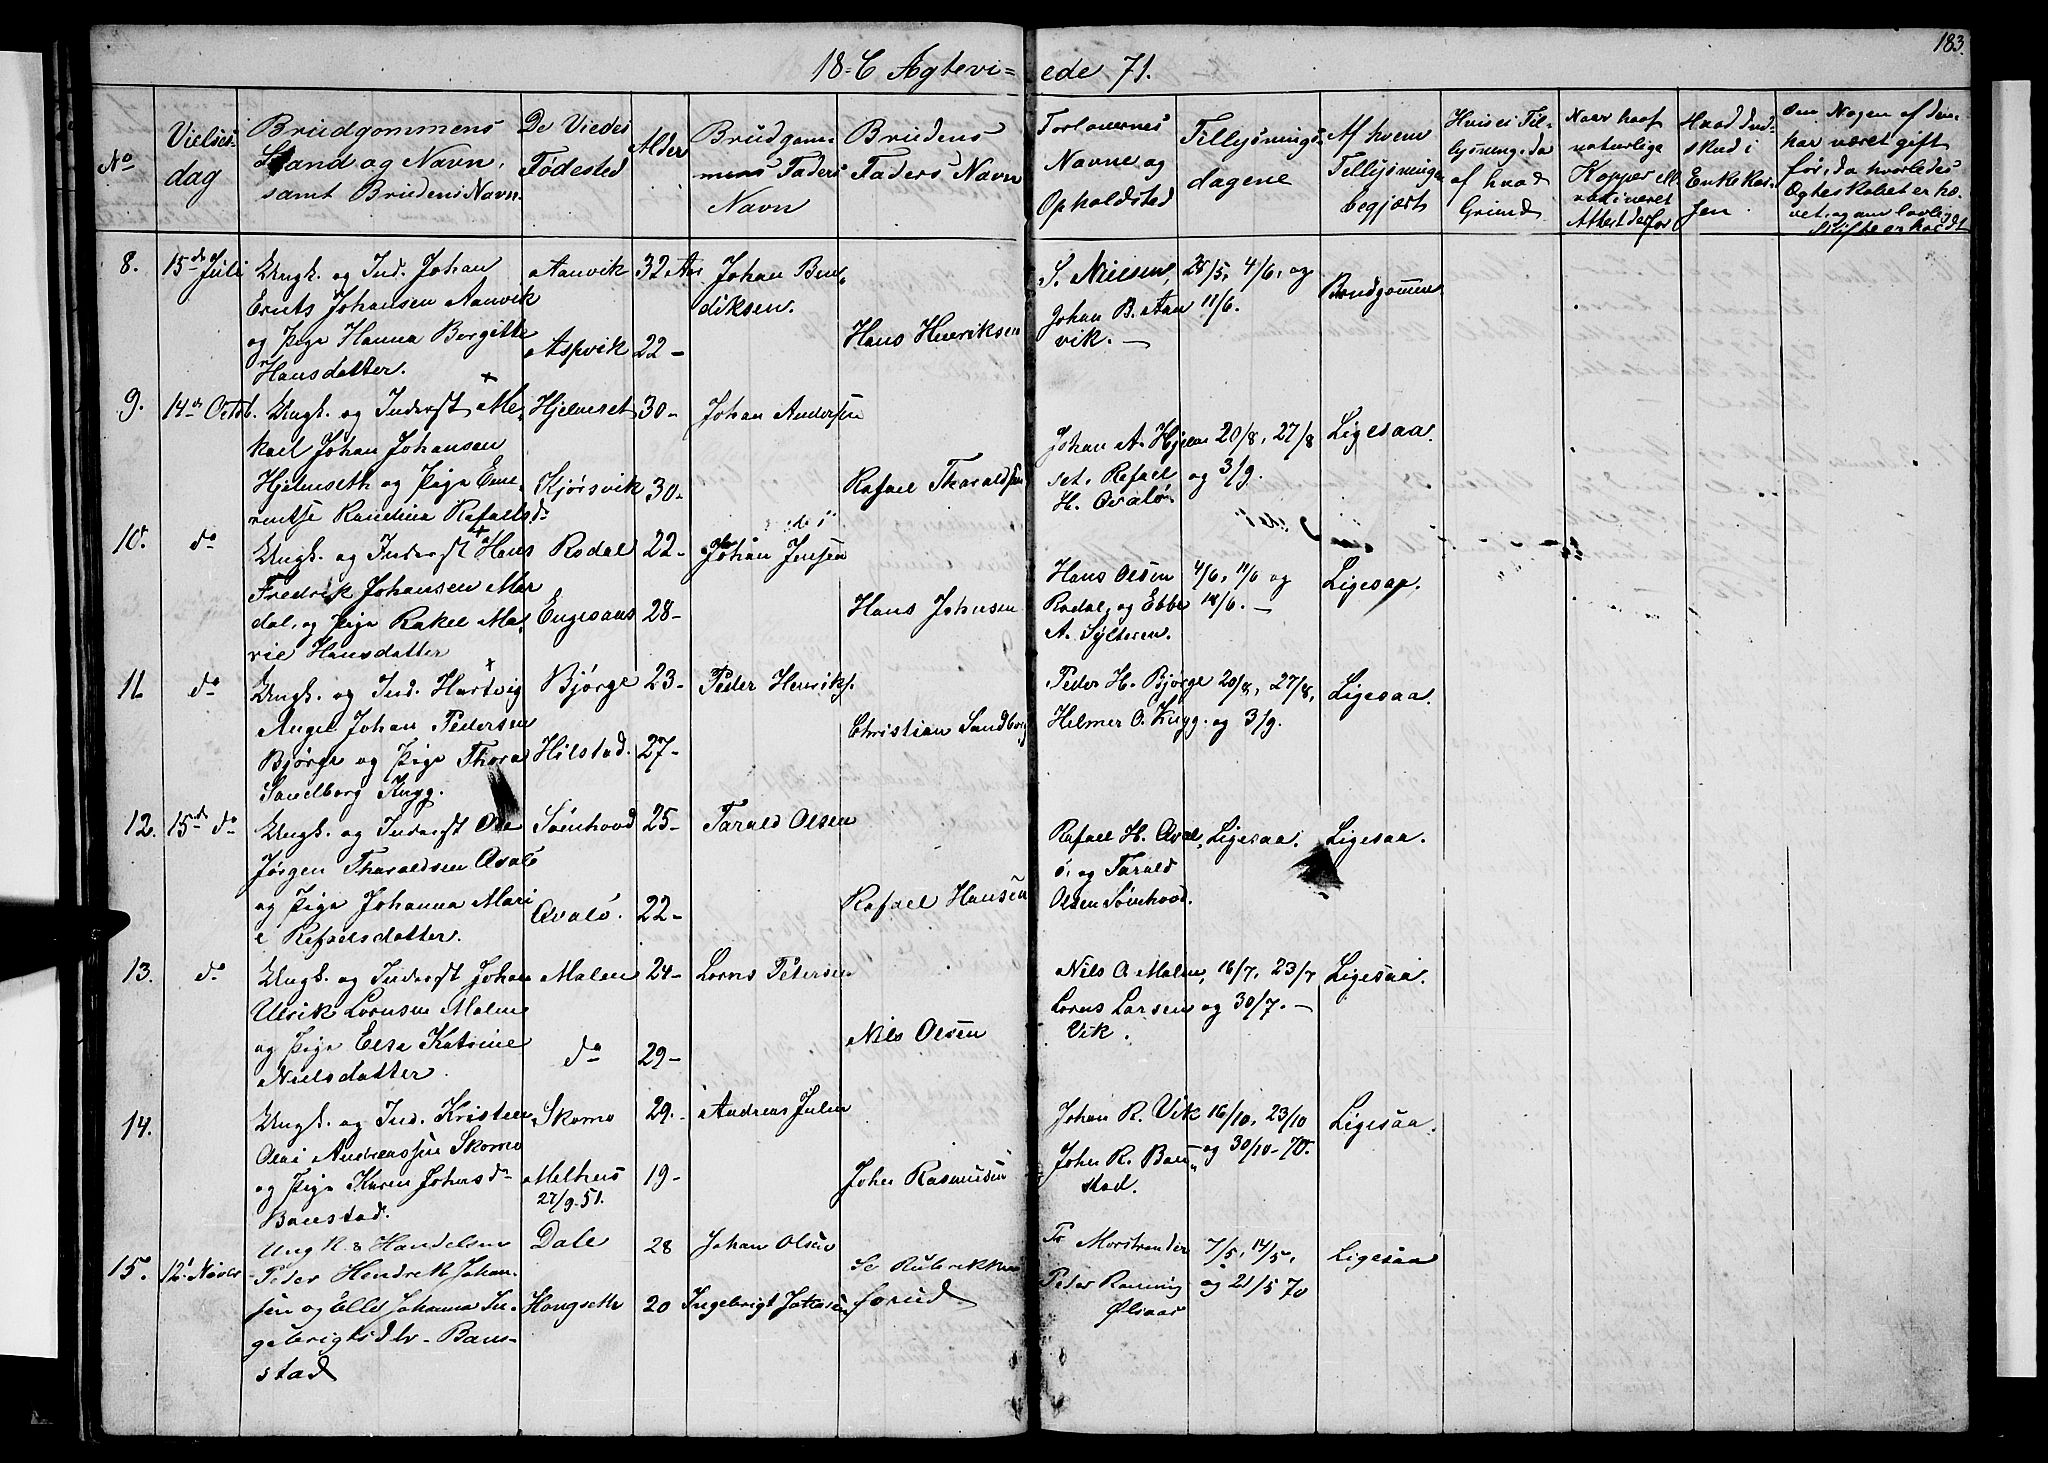 183.
18 = C Ægtevi= ede 71.
No
Vielses-
dag
Brudgommens
Stand og Navn,
samt Brudens Navn.
De Viedes
Fødested
Alder
Brudgom-
mens Faders
Navn
Brudens
Faders Navn
Forlovernes
Navne og
Opholdsted
Tillysnings-
dagene
Af hvem
Tillysninga
begjært
Hvis ei Til-
lysning, da
af hvad
Grund
Naar havt
naturlige
Kopper ell.
vaccineret
Attest derfor
Hvad Ind-
skud i
Enkekas-
sen.
Om Nogen af dem
har været gift
før, da hvorledes
Ægteskabet er hæ-
vet, og om lovlig
Skifte er holdt
8. 15de Juli
Ungk. og Ind. Johan
Ernts Johansen Aanvik
og Pige Hanna Bergitte
Hansdatter.
Aanvik 32 Aar
Aspvik 22 -
Johan Ben-
diksen.
Hans Henriksen
S. Nielsen,
Johan B. Aan
vik. -
28/5, 4/6, og
11/6.
Brudgomme
9. 14de Octob.
Ungk. og Inderst Me-
kael Johan Johansen
Hjelmseth og Pige Eme-
rentse Randina Rafaelsd.
Hjelmset 30 -
Kjørsvik 30 -
Johan Andersen
Rafael Tharaldsen
Johan A. Hjelm-
set, Rafael
H. Ovalø
20/8, 27/8
og 3/9.
Ligesaa.
10. do
Ungk. og Inderst Hans
Fredrik Johansen Mar
dal, og Pige Rakel Ma-
rie Hansdatter
Rodal 22 -
Engesaas 28 -
Johan Jensen
Hans Johnsen
Hans Olsen
Rodal, og Ebbe
A. Sylteren.
4/6, 11/6 og
18/6. -
Ligesaa.
11. do
Ungk. og Ind. Hartvig
Angel Johan Pedersen
Bjørge og Pige Thora
Sandborg Kugg.
Bjørge 23 -
Hilstad. 27 -
Peder Henriks.
Christian Sandborg
Peder H. Bjørge
Helmer O. Kugg.
20/8, 27/8,
og 3/9.
Ligesaa.
12. 15de do
Ungk. og Inderst Ole
Jørgen Tharaldsen Ovalø
og Pige Johanna Mari
e Rafaelsdatter.
Søinhovd 25 -
Ovalø. 22 -
Tarald Olsen
Rafael Hansen
Rafael H. Oval-
ø, og Tarald
Olsen Søinhovd.
Ligesaa.
Ligesaa.
13. do
Ungk. og Inderst Johan
Ulrik Lornsen Malen
og Pige Elsa Katrine
Nielsdatter.
Malen 24 -
do 29 -
Lorns Petersen
Nils Olsen
Nils O. Malen,
Lorns Larsen
Vik.
16/7, 23/7
og 30/7. -
Ligesaa.
14.
Ungk. og Ind. Kristen
Olai Andreassen Skomo
og Pige Karen Johnsd.
Banstad.
Skomo 29 -
Melhus 19 -
27/9-51.
Andreas Julin
John Rasmussen
Johan R. Vik
John R. Ban-
stad.
16/10, 23/10
og 30/10 - 70.
Ligesaa.
15. 12te Novbr
Ungk. & Handelsm
Peder Hendrik Johan-
sen og Elle Johanna In-
gebrigtsdtr - Bans-
stad
Dale 28
Hongseth 20
Johan Olsen
Ingebrigt Johnsen
Se Rubrikken
forud.
Fr Morstrander
Peder Rønning
Ølsaas
7/5, 14/5,
og 21/5 70
Ligesaa